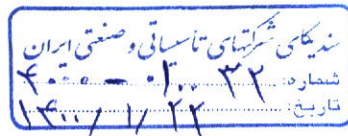 سندیکای شرکتهای تأسیساتی و صنعتی ایران
شماره:
تاریخ: ۱۴۰۰/۱/۲۲